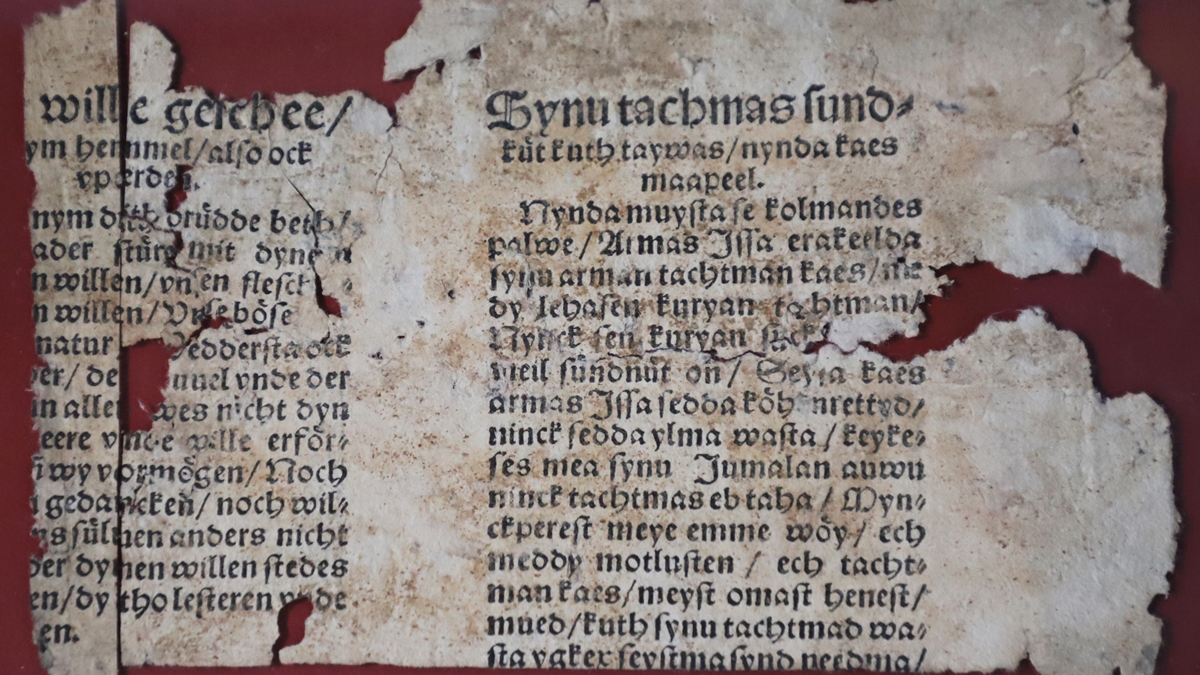 wille geschee/
ym hemmel/also ock
vp erden.
nym drüdde beth/
ader mit dynen
n willen/vnsen flesch
n willen/Vnse böse
natur ock
er/ de vnde der
in alle nicht dyn
eere vnde wille erför⸗
wy vormögen/Noch
gedancken/ noch wil⸗
süllen anders nicht
der dynen willen stedes
en/dy tho lesteren vnde
en.
Synu tachmas sund⸗
kut kuth taywas/nynda kaes
maapeel.
Nynda muysta se kolmandes
palwe/Armas Issa erakeelda
synu arman tachtman kaes/
dy lehasen kuryan tachtman/
Nynck sen kuryan
meil sündnüt on/ kaes
armas Issa sedda
ninck sedda ylma wasta/keyke⸗
ses mea synu Jumalan auwu
ninck tachtmas eb taha/Myn⸗
ckperest meye emme wöy/ ech
meddy motlusten/ ech tacht⸗
man kaes/meyst omast henest/
mued/kuth synu tachtmad wa⸗
sta ygkex seystma synd needma/